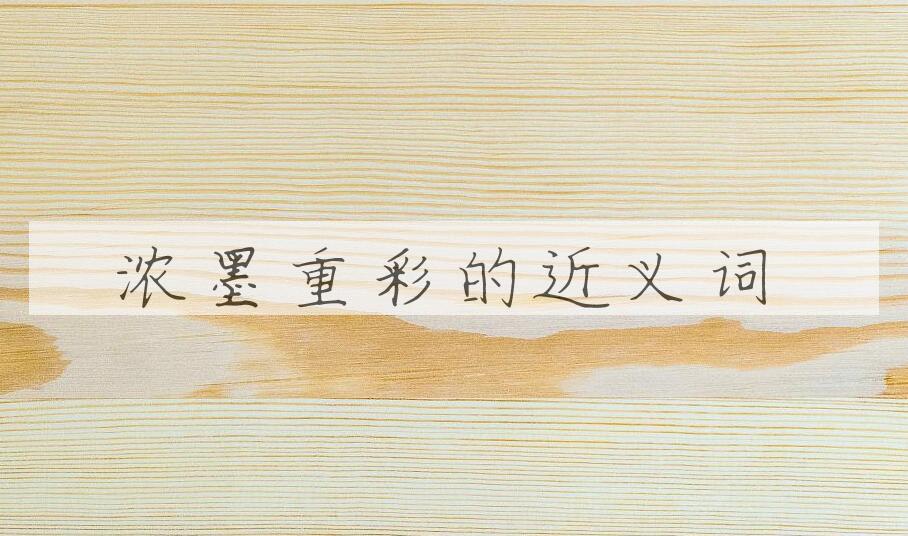 浓墨重彩的近义词